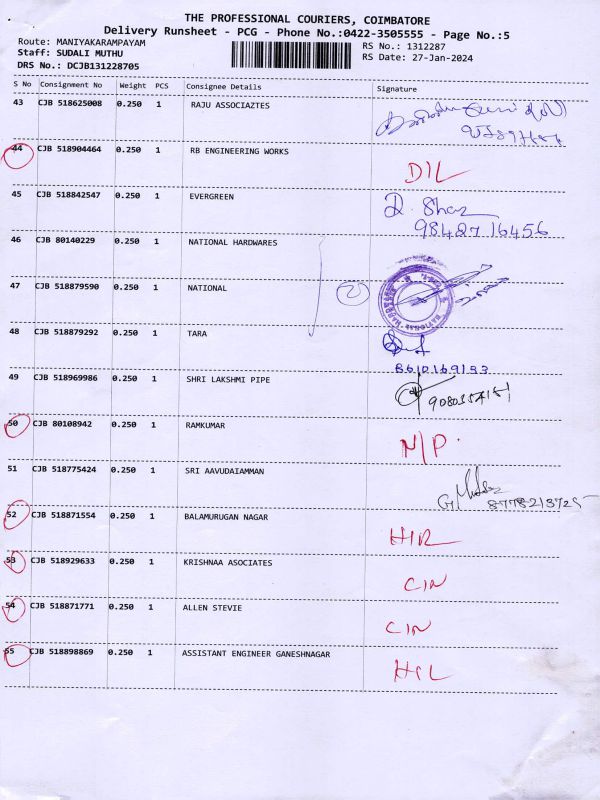 THE PROFESSIONAL COURIERS, COIMBATORE
Delivery Runsheet - PCG - Phone No.:0422-3505555 - Page No.:5
Route: MANIYAKARAMPAYAM RS No.: 1312287
Staff: SUDALI MUTHU RS Date: 27-Jan-2024
DRS No.: DCJB131228705
S No Consignment No Weight PCS Consignee Details Signature
43 CJB 518625008 0.250 1 RAJU ASSOCIAZTES
44 CJB 518904464 0.250 1 RB ENGINEERING WORKS DIL
45 CJB 518842547 0.250 1 EVERGREEN
9842716456
46 CJB 80140229 0.250 1 NATIONAL HARDWARES
47 CJB 518879590 0.250 1 NATIONAL 2
48 CJB 518879292 0.250 1 TARA
8610169193
49 CJB 518969986 0.250 1 SHRI LAKSHMI PIPE
50 CJB 80108942 0.250 1 RAMKUMAR N/P.
51 CJB 518775424 0.250 1 SRI AAVUDAIAMMAN
52 CJB 518871554 0.250 1 BALAMURUGAN NAGAR
53 CJB 518929633 0.250 1 KRISHNAA ASOCIATES CIN
54 CJB 518871771 0.250 1 ALLEN STEVIE CIN
55 CJB 518898869 0.250 1 ASSISTANT ENGINEER GANESHNAGAR